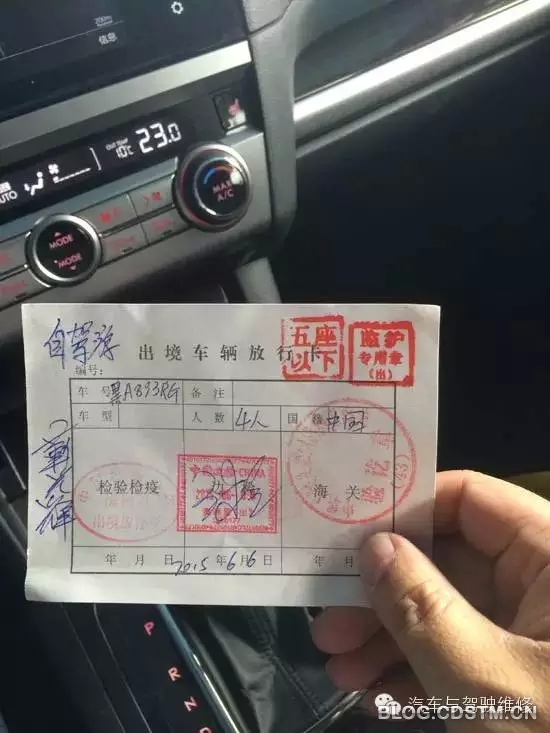 200m
信息
OUT TEMP
10℃ 23.0
AUTO
MAX
A/C
MODE
MODE
自驾游 出境车辆放行卡
五座
以下
监护
专用章
(出)
编号:
车号 黑A893RG 备注
车型 人数 4人 国籍 中国
检验检疫 海关
出境放行章
中国 CHINA
(43)
年 月 日 2015年6月6日 年 月
P
R
N
D
汽车与驾驶维修
BLOG.CDSTM.CN